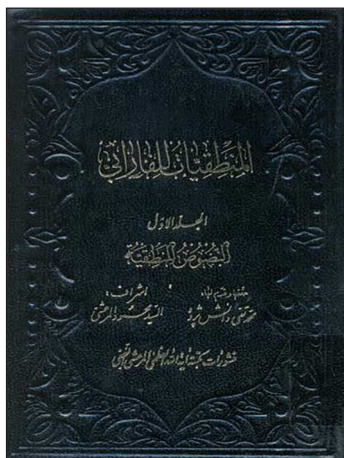 المنطقيات للفارابي
المجلد الاول
النصوص المنطقية
حققها وقدم لها:
اشراف:
محمد تقي دانش پژوه
السيد محمود المرعشي
منشورات مكتبة آية الله العظمى المرعشي النجفي